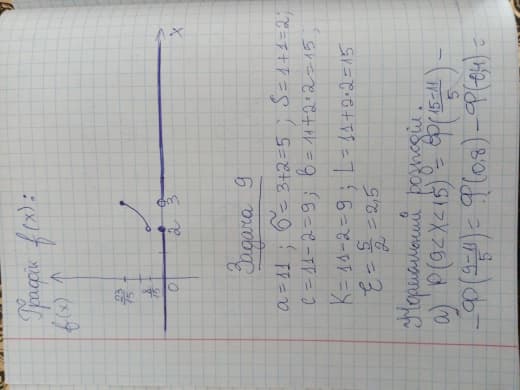 Графік f(x):
f(x)
23/15
8/15
0 2 3 x
Задача 9
a = 11 ; σ = 3+2=5 ; S = 1+1=2;
c = 11-2 = 9 ; b = 11+2•2 = 15 ;
K = 11-2 = 9 ; L = 11+2•2 = 15
ε = 5/2 = 2,5
Нормальний розподіл.
а) P(9<X<15) = Ф(15-11/5) -
- Ф(9-11/5) = Ф(0,8) - Ф(-0,4) =